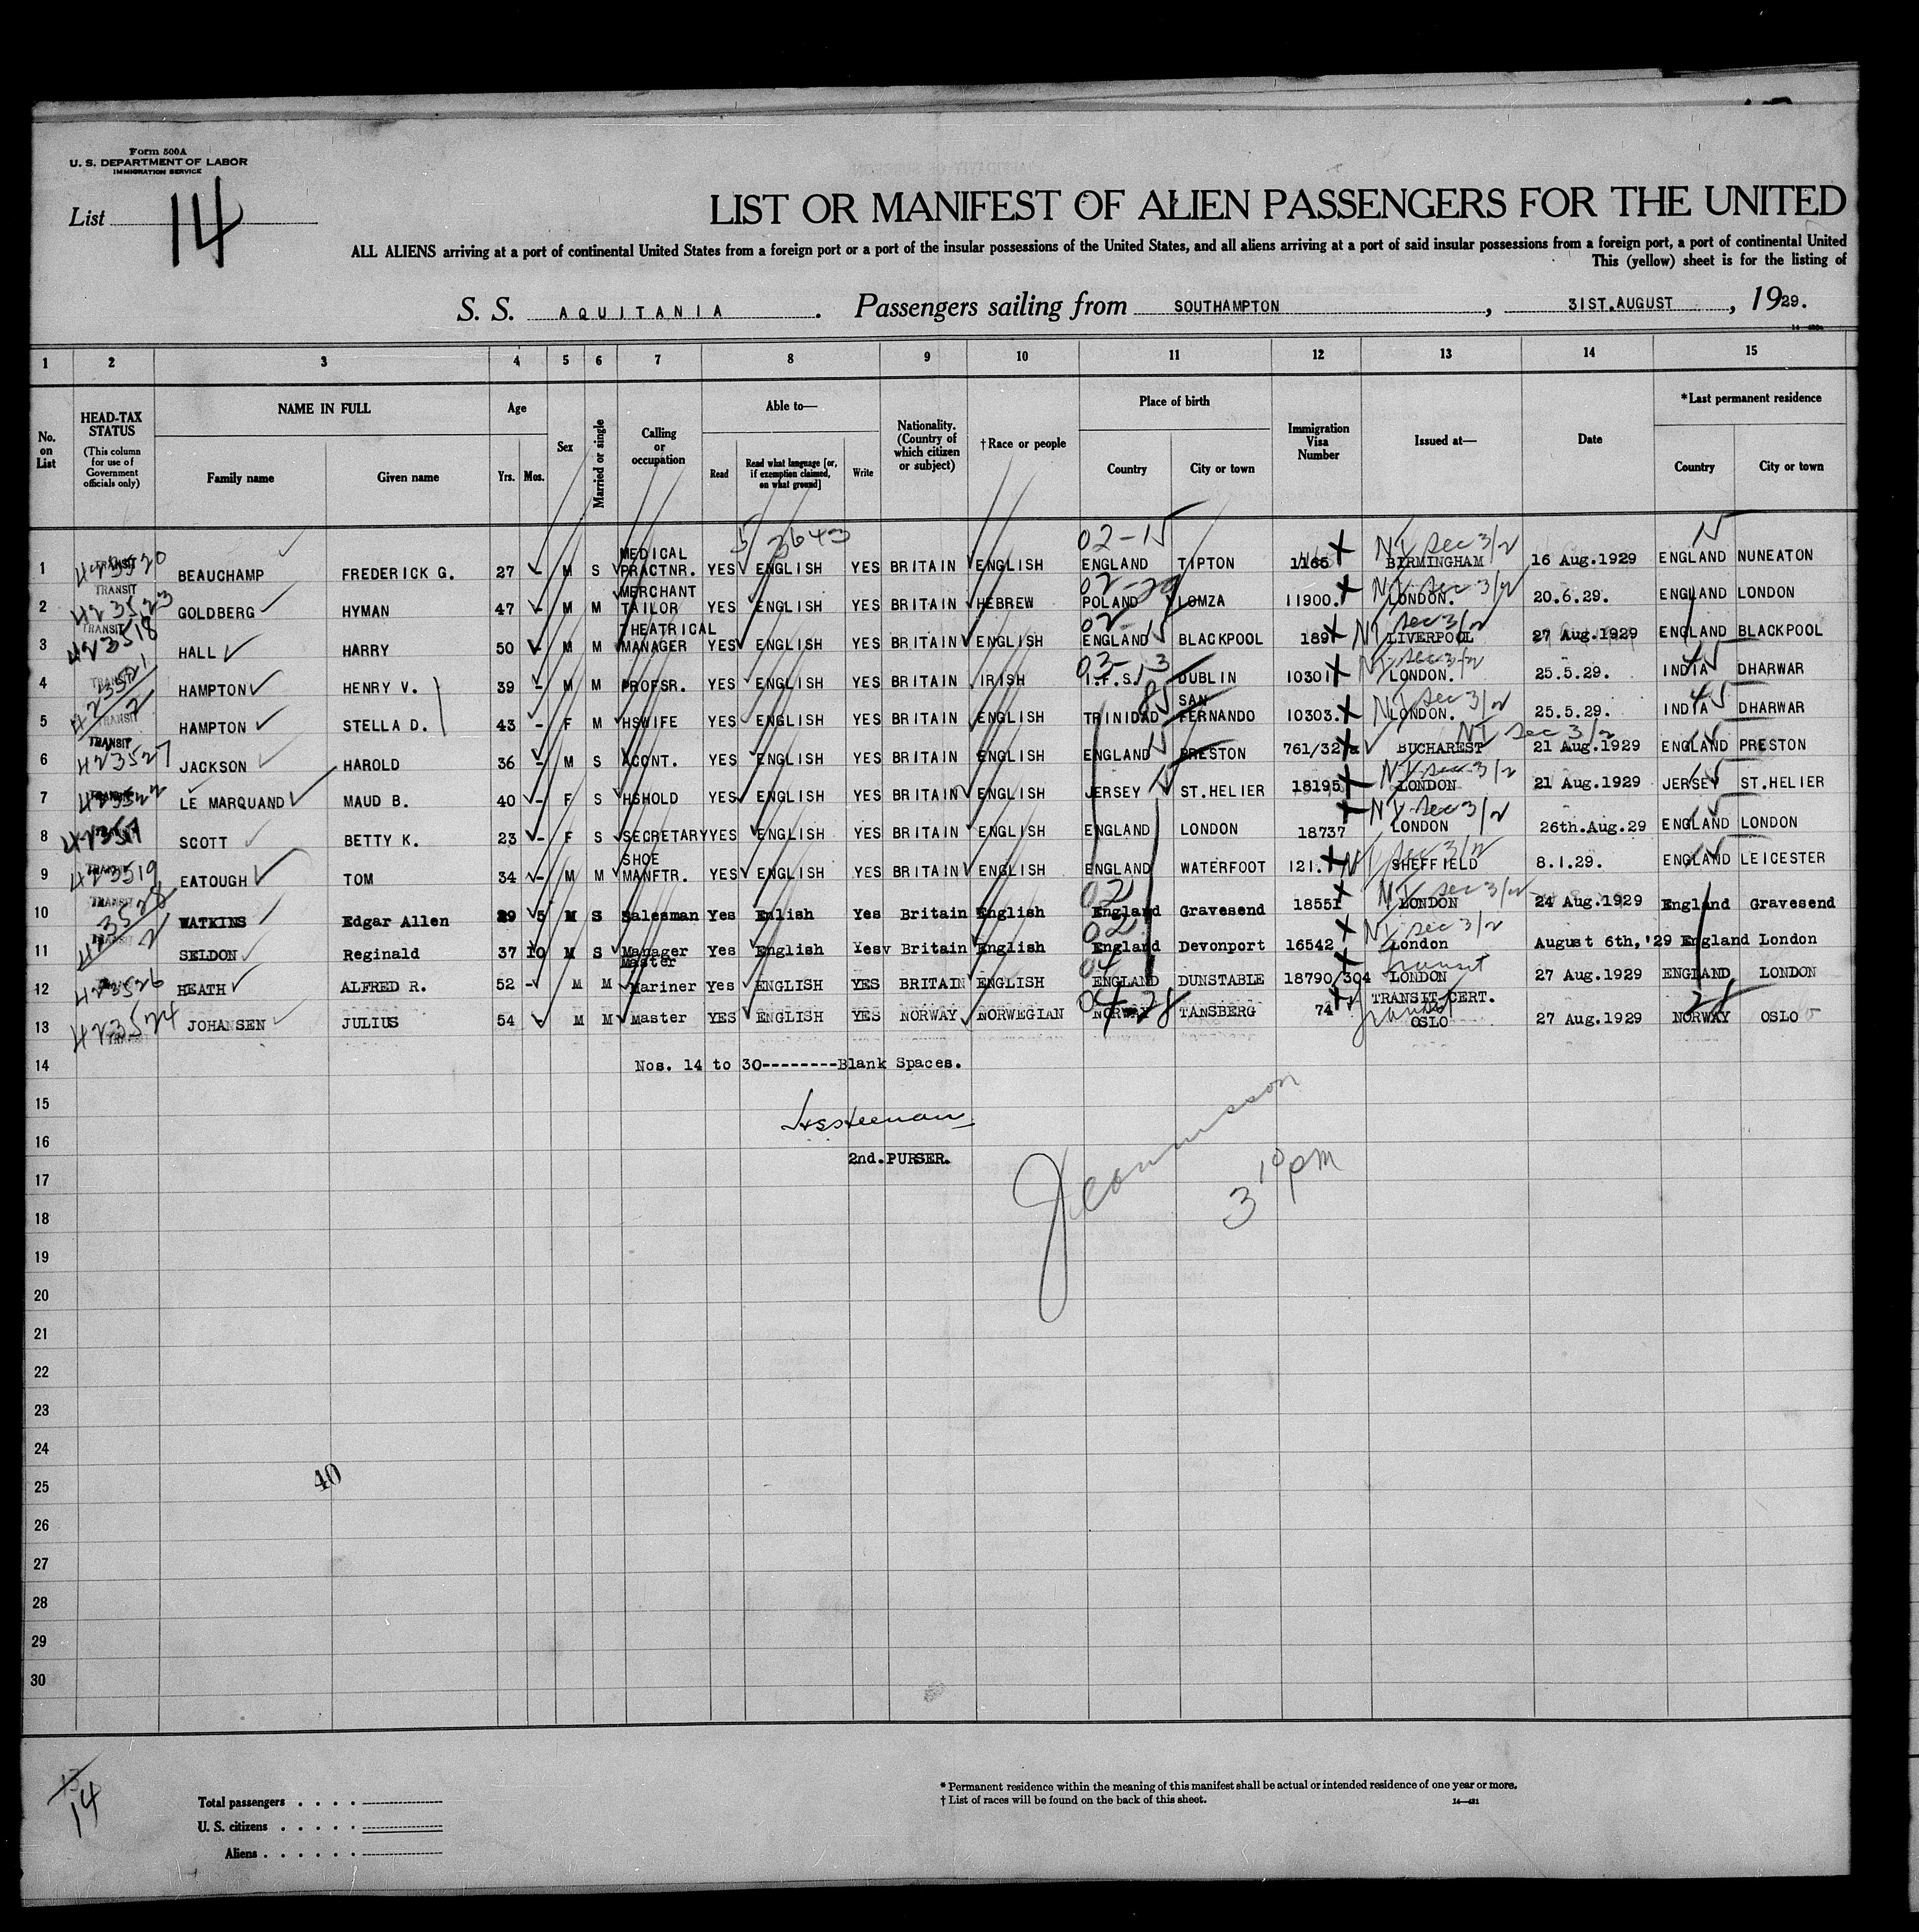 Form 500A
U. S. DEPARTMENT OF LABOR
IMMIGRATION SERVICE
List 14
LIST OR MANIFEST OF ALIEN PASSENGERS FOR THE UNITED
ALL ALIENS arriving at a port of continental United States from a foreign port or a port of the insular possessions of the United States, and all aliens arriving at a port of said insular possessions from a foreign port, a port of continental United
This (yellow) sheet is for the listing of
S. S. AQUITANIA. Passengers sailing from SOUTHAMPTON, 31ST.AUGUST, 1929.
1 2 3 4 5 6 7 8 9 10 11 12 13 14 15
No. on List
HEAD-TAX STATUS (This column for use of Government officials only)
NAME IN FULL
Family name
Given name
Age
Yrs. Mos.
Sex
Married or single
Calling or occupation
Able to—
Read
Read what language [or, if exemption claimed, on what ground]
Write
Nationality. (Country of which citizen or subject)
†Race or people
Place of birth
Country
City or town
Immigration Visa Number
Issued at—
Date
*Last permanent residence
Country
City or town
5/3643 02-15
1 TRANSIT 423520 BEAUCHAMP FREDERICK G. 27 - M S MEDICAL PRACTNR. YES ENGLISH YES BRITAIN ENGLISH ENGLAND TIPTON 1165 NI Sec 3/2 BIRMINGHAM 16 Aug.1929 ENGLAND NUNEATON
2 TRANSIT 423523 GOLDBERG HYMAN 47 - M M MERCHANT TAILOR YES ENGLISH YES BRITAIN HEBREW POLAND LOMZA 11900. NI Sec 3/2 LONDON. 20.6.29. ENGLAND LONDON
3 TRANSIT 423518 HALL HARRY 50 - M M THEATRICAL MANAGER YES ENGLISH YES BRITAIN ENGLISH 02-15 ENGLAND BLACKPOOL 189 NI Sec 3/2 LIVERPOOL 27 Aug.1929 ENGLAND BLACKPOOL
4 TRANSIT 423521 HAMPTON HENRY V. 39 - M M PROFSR. YES ENGLISH YES BRITAIN IRISH 03-13 I.F.S. DUBLIN 10301 NI Sec 3/2 LONDON. 25.5.29. INDIA DHARWAR
5 TRANSIT HAMPTON STELLA D. 43 - F M HSWIFE YES ENGLISH YES BRITAIN ENGLISH TRINIDAD SAN FERNANDO 10303. NI Sec 3/2 LONDON. 25.5.29. INDIA DHARWAR
6 TRANSIT 423527 JACKSON HAROLD 36 - M S ACONT. YES ENGLISH YES BRITAIN ENGLISH ENGLAND PRESTON 761/32 NI Sec 3/2 BUCHAREST 21 Aug.1929 ENGLAND PRESTON
7 423522 LE MARQUAND MAUD B. 40 - F S HSHOLD YES ENGLISH YES BRITAIN ENGLISH JERSEY ST.HELIER 18195 NI Sec 3/2 LONDON 21 Aug.1929 JERSEY ST.HELIER
8 SCOTT BETTY K. 23 - F S SECRETARY YES ENGLISH YES BRITAIN ENGLISH ENGLAND LONDON 18737 NI Sec 3/2 LONDON 26th.Aug.29 ENGLAND LONDON
9 TRANSIT 423519 EATOUGH TOM 34 - M M SHOE MANFTR. YES ENGLISH YES BRITAIN ENGLISH ENGLAND WATERFOOT 121. NI Sec 3/2 SHEFFIELD 8.1.29. ENGLAND LEICESTER
10 TRANSIT 423528 WATKINS Edgar Allen 29 5 M S Salesman Yes Enlish Yes Britain English 02 England Gravesend 18551 NI Sec 3/2 LONDON 24 Aug.1929 England Gravesend
11 TRANSIT SELDON Reginald 37 10 M S Manager Yes English Yes Britain English 02 England Devonport 16542 NI Sec 3/2 London August 6th,'29 England London
12 423526 HEATH ALFRED R. 52 - M M Master Mariner Yes ENGLISH YES BRITAIN ENGLISH 04 ENGLAND DUNSTABLE 18790/304 Transit LONDON 27 Aug.1929 ENGLAND LONDON
13 423524 JOHANSEN JULIUS 54 M M Master YES ENGLISH YES NORWAY NORWEGIAN 04-28 NORWAY TANSBERG 74 TRANSIT CERT. Transit OSLO 27 Aug.1929 28 NORWAY OSLO
14 Nos. 14 to 30--------Blank Spaces.
15
16
2nd.PURSER.
17
3 10 pm
18
19
20
21
22
23
24
25
40
26
27
28
29
30
13
14
Total passengers . . . .
U. S. citizens . . . . .
Aliens . . . . . .
* Permanent residence within the meaning of this manifest shall be actual or intended residence of one year or more.
† List of races will be found on the back of this sheet.
14—431